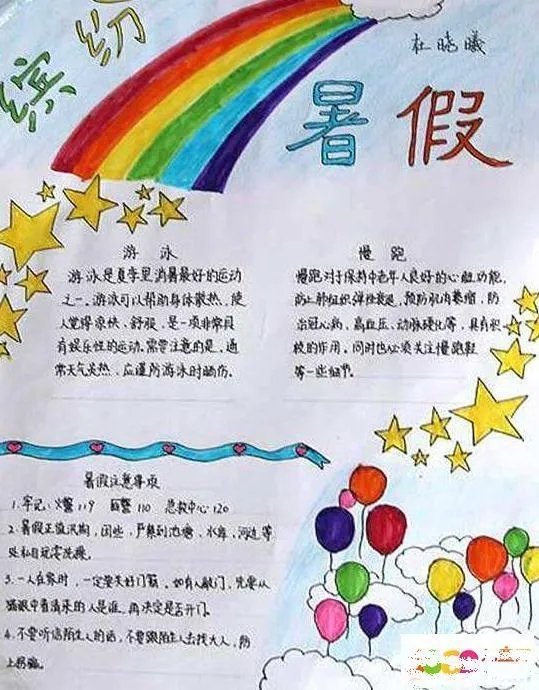 缤纷
暑假
杜晓曦
游泳
游泳是夏季里消暑最好的运动
之一。游泳可以帮助身体散热，使
人觉得凉快、舒服，是一项非常具
有娱乐性的运动。需要注意的是，通
常天气炎热，应谨防游泳时晒伤。
慢跑
慢跑对于保持中老年人良好的心脏功能，
防止肺组织弹性衰退，预防肌肉萎缩，防
治冠心病、高血压、动脉硬化等，具有积
极的作用。同时也必须关注慢跑鞋
等一些细节。
暑假注意事项
1.牢记：火警119 匪警110 急救中心120
2.暑假正值汛期，因些，严禁到池塘、水库、河边等
处私自玩耍洗澡。
3.一人在家时，一定要关好门窗。如有人敲门，先要从
猫眼中看清来的人是谁，再决定是否开门。
4.不要听信陌生人的话，不要跟陌生人去找大人，防
上拐骗。